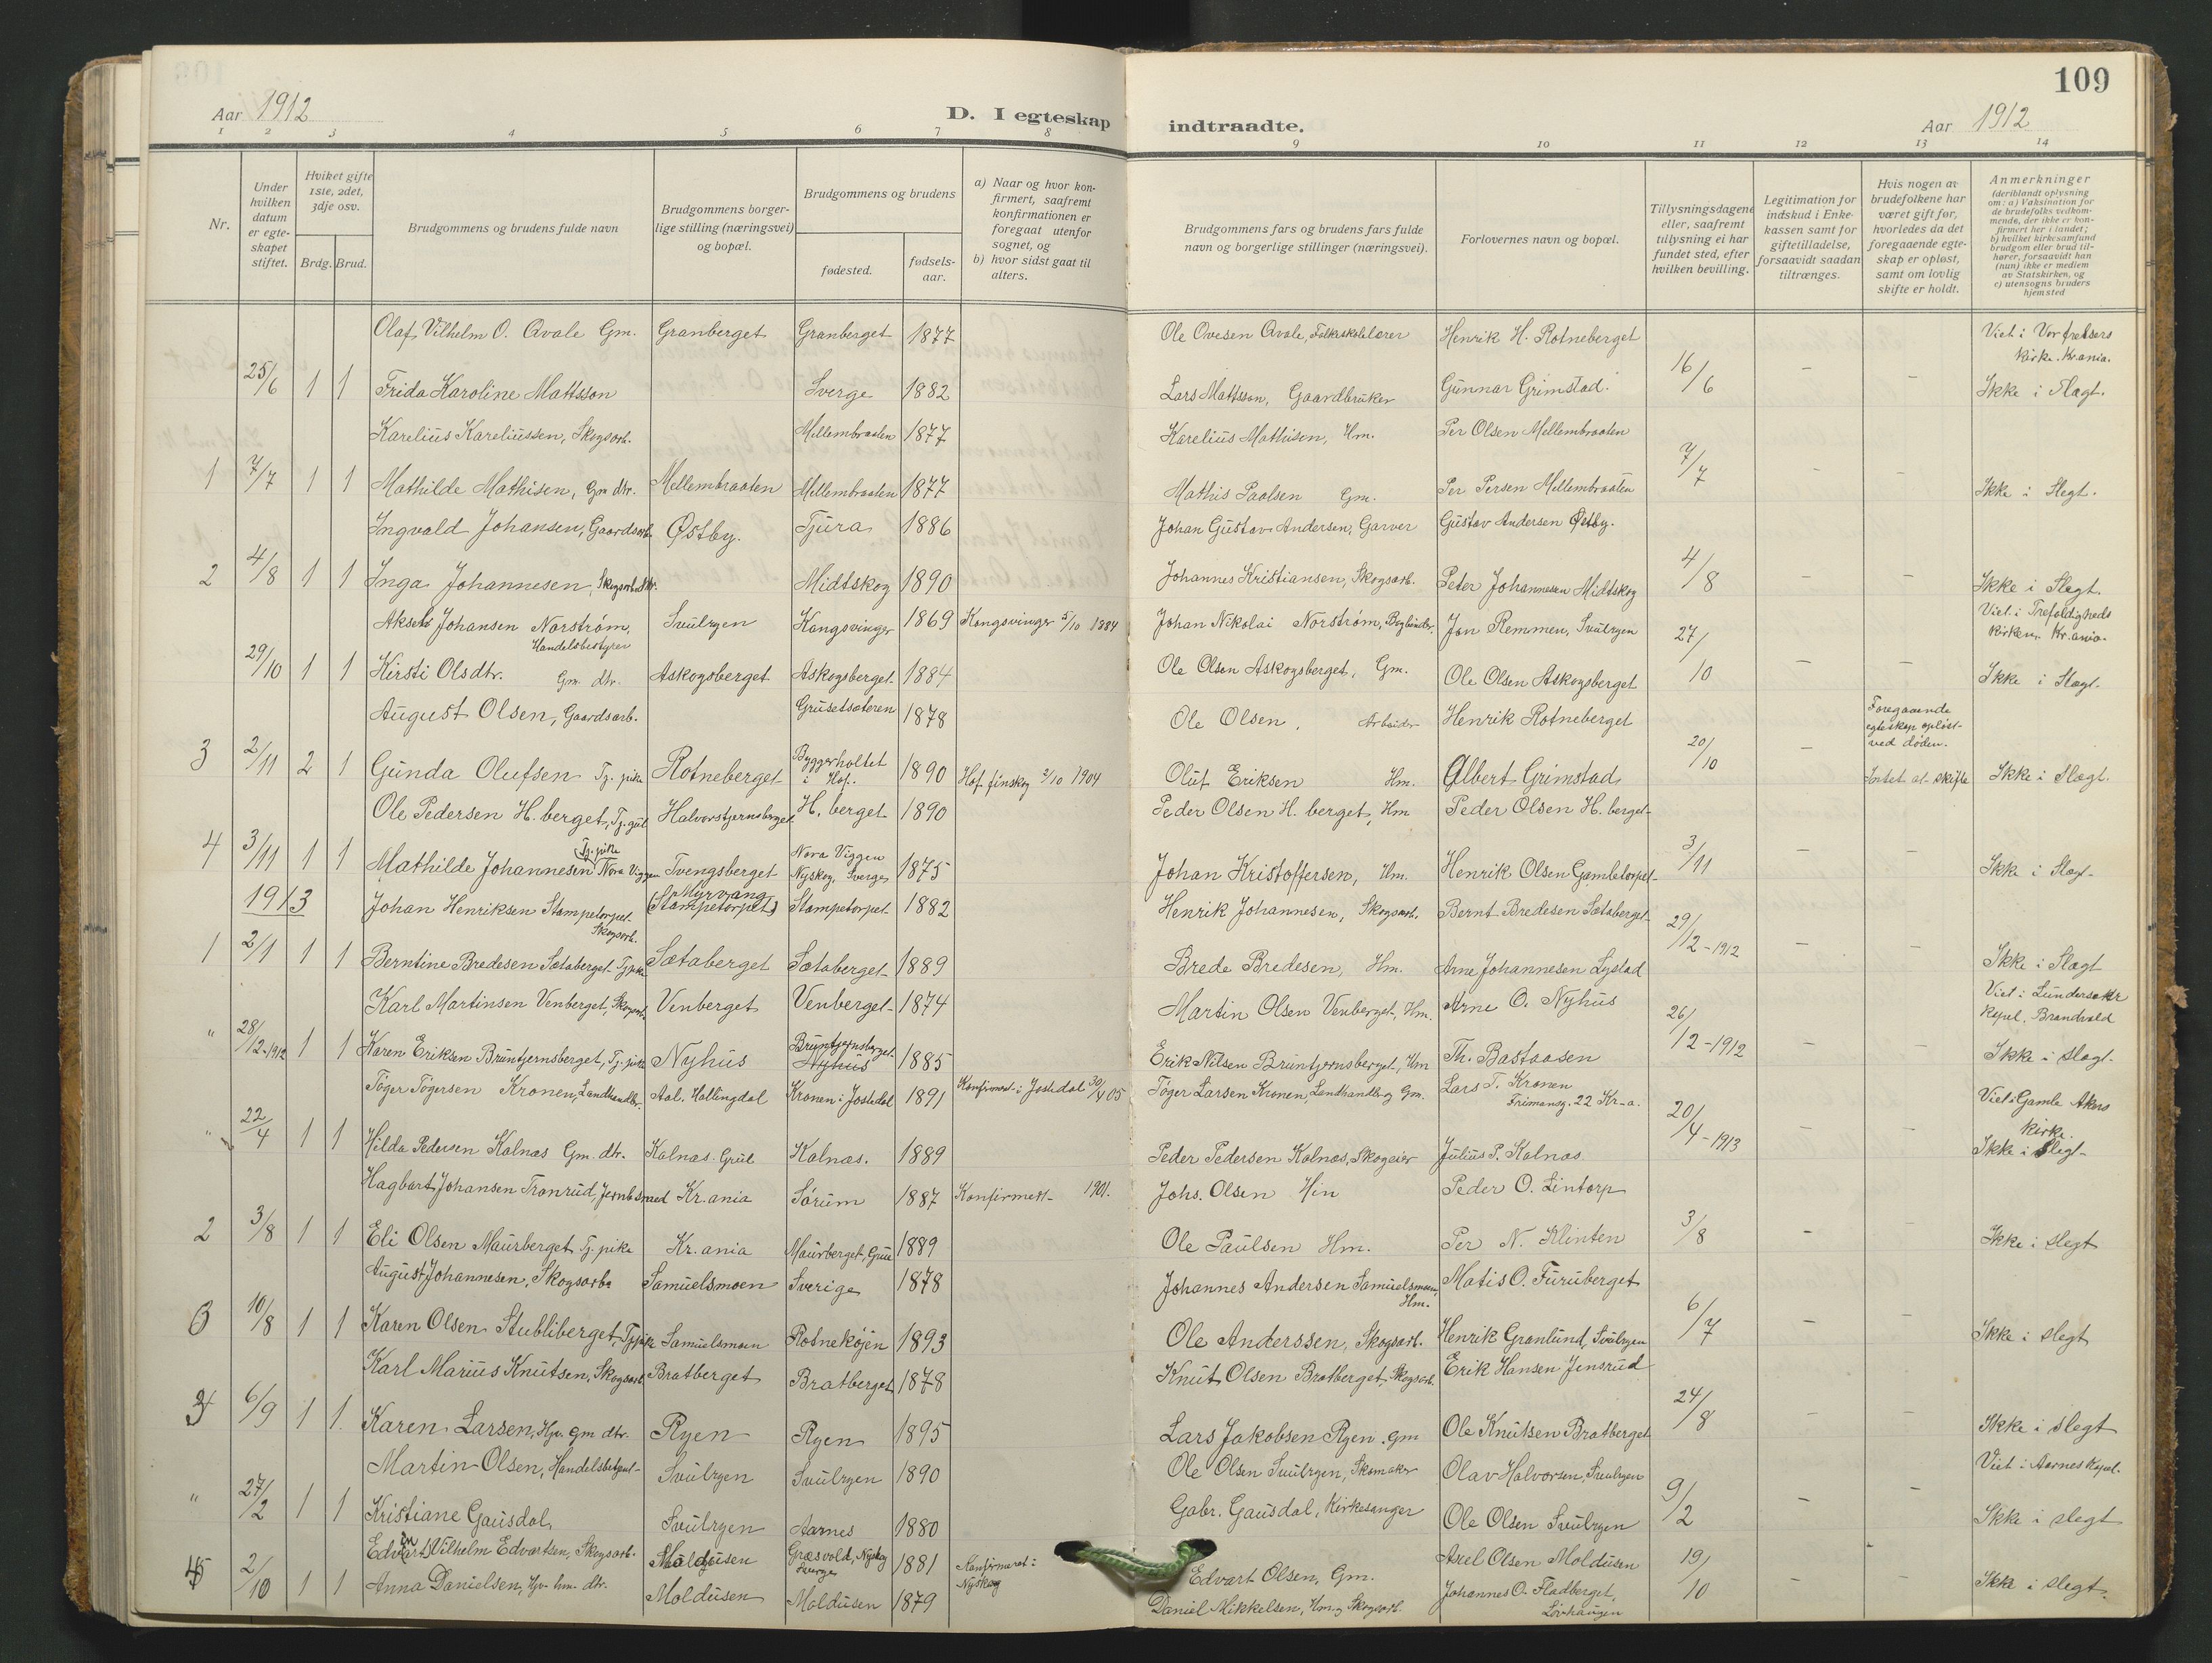 109
Aar 1912
D. I egteskap indtraadte.
Aar 1912
1 2 3 4 5 6 7 8 9 10 11 12 13 14
Nr.
Under hvilken datum er egteskapet stiftet.
Hvilket gifte 1ste, 2det, 3dje osv.
Brdg. Brud.
Brudgommens og brudens fulde navn
Brudgommens borgerlige stilling (næringsvei) og bopæl.
Brudgommens og brudens
fødested.
fødsels-aar.
a) Naar og hvor konfirmert, saafremt konfirmationen er foregaat utenfor sognet, og
b) hvor sidst gaat til alters.
Brudgommens fars og brudens fars fulde navn og borgerlige stillinger (næringsvei).
Forlovernes navn og bopæl.
Tillysningsdagene eller, saafremt tillysning ei har fundet sted, efter hvilken bevilling.
Legitimation for indskud i Enkekassen samt for giftetilladelse, forsaavidt saadan tiltrænges.
Hvis nogen av brudefolkene har været gift før, hvorledes da det foregaaende egteskap er opløst, samt om lovlig skifte er holdt.
Anmerkninger (deriblandt oplysning om: a) Vaksination for de brudefolks vedkommende, der ikke er konfirmert her i landet; b) hvilket kirkesamfund brudgom eller brud tilhører, forsaavidt han (hun) ikke er medlem av Statskirken, og c) utensogns bruders hjemsted
Olaf Vilhelm O. Qvale Gm. Granberget Granberget 1877 Ole Ovesen Qvale, Folkeskolelærer Henrik H. Rotneberget Viet i Vor frelsers kirke. Kr.ania.
25/6 1 1 Frida Karoline Mattsson Sverge 1882 Lars Mattsson, Gaardbruker Gunnar Grimstad. 16/6 – – Ikke i Slægt.
Karelius Kareliussen, Skogsarb. Mellembraaten 1877 Karelius Mathisen, Hm. Per Olsen Mellembraaten
1 7/7 1 1 Mathilde Mathisen, Gm dtr. Mellembraaten Mellembraaten 1877 Mathis Paalsen Gm. Per Persen Mellembraaten 7/7 – – Ikke i Slegt.
Ingvald Johansen, Gaardsarb. Østby. Tjura 1886 Johan Gustav Andersen, Garver Gustav Andersen Østby.
2 4/8 1 1 Inga Johannesen, Skogsarb. dtr. Midtskog 1890 Johannes Kristiansen, Skogsarb. Peter Johannesen Midtskog 4/8 – – Ikke i Slegt.
Aksel Johansen Norstrøm, Handelsbestyrer Svulryen Kongsvinger 1869 Kongsvinger 5/10 1884 Johan Nikolai Norstrøm, Bogbinder. Jon Remmen, Svulryen Viet i Trefoldigheds kirken Kr.ania.
29/10 1 1 Kirsti Olsdtr. Gm. dtr. Askogsberget Askogsberget 1884 Ole Olsen Askogsberget, Gm. Ole Olsen Askogsberget 27/10 – – Ikke i Slægt.
August Olsen, Gaardsarb. Grusetsæteren 1878 Ole Olsen, Arbeider Henrik Rotneberget Foregaaende egteskap opløst ved døden.
3 2/11 2 1 Gunda Olufsen Tj. pike Rotneberget Byggerholtet i Hof. 1890 Hof finskog 2/10 1904 Oluf Eriksen Hm. Albert Grimstad 20/10 – Intet at skifte Ikke i Slægt.
Ole Pedersen H. berget, Tj. gut Halvorstjernsberget. H. berget 1890 Peder Olsen H. berget, Hm Peder Olsen H. berget
4 3/11 1 1 Mathilde Johannesen Tj. pike Nora Viggen Tvengsberget Nora Viggen Nyskog, Sverge 1875 Johan Kristoffersen, Hm. Henrik Olsen Gambletorpet 3/11 – – Ikke i Slægt
1913 Johan Henriksen Stampetorpet Skogsarb. Myrvang (Stampetorpet) Stampetorpet 1882 Henrik Johannesen, Skogsarb. Bernt Bredesen Sætaberget
1 2/1 1 1 Berntine Bredesen Sætaberget Tj pike Sætaberget Sætaberget 1889 Brede Bredesen, Hm. Arne Johannesen Lystad 29/12-1912 – – Ikke i Slægt
Karl Martinsen Venberget, Skogsarb. Venberget Venberget 1874 Martin Olsen Venberget, Hm. Arne O. Nyhus Viet i Lundersæter Kapel. Brandvold
" 28/12-1912 1 1 Karen Eriksen Bruntjernsberget, Tj. pike Nyhus Bruntjernsberget Nyhus 1885 Erik Nilsen Bruntjernsberget, Hm Th. Bastaasen 26/12-1912 – – Ikke i slægt.
Tøger Tøgersen Kronen, Landhandler. Aal. Hallingdal Kronen i Jostedal 1891 Konfirmert i Jostedal 30/4 05 Tøger Larsen Kronen, Landhandl. og Gm. Lars T. Kronen Frimansg. 22 Kr-a. Viet i Gamle Akers kirke.
" 22/4 1 1 Hilda Pedersen Kalnæs Gm. dtr. Kalnæs. Grue Kalnæs. 1889 Peder Pedersen Kalnæs, Skogeier Julius P. Kalnæs 20/4-1913 – – Ikke i Slegt
Hagbart Johansen Tronrud, Jernb.smed Kr.ania Sørum 1887 Konfirmert 1901. Johs. Olsen Peder O. Lintorp
2 3/8 1 1 Eli Olsen Maurberget Tj. pike Kr.ania Maurberget, Grue 1889 Ole Paulsen Hm. Per N. Klinten 3/8 – – Ikke i slegt
August Johannesen, Skogsarb. Samuelsmoen Sverige 1878 Johannes Andersen Samuelsmoen, Hm. Matis O. Furuberget
3 10/8 1 1 Karen Olsen Stubliberget, Tj. pike Samuelsmoen Rotnekøjen 1893 Ole Anderssen, Skogsarb. Henrik Grønlund, Svulryen 6/7 – – Ikke i slegt
Karl Marius Knutsen, Skogsarb. Bratberget Bratberget 1878 Knut Olsen Bratberget, Skogsarb. Erik Hansen Jensrud
6/9 1 1 Karen Larsen, Hjv. Gm dtr. Ryen Ryen 1895 Lars Jakobsen Ryen. Gm Ole Knutsen Bratberget 24/8 – – Ikke i slegt
Martin Olsen, Handelsbetjent Svulryen Svulryen 1890 Ole Olsen Svulryen, Skomaker Olav Halvorsen, Svulryen Viet i Aarnes Kapel.
" 27/2 1 1 Kristiane Gausdal Svulryen Aarnes 1880 Gabr. Gausdal, Kirkesanger Ole Olsen Svulryen 9/2 – – Ikke i slegt
Edvart Vilhelm Edvartsen, Skogsarb. Moldusen Græsvold, Nyskog Sverge 1881 Konfirmeret i Nyskog Edvart Olsen, Gm. Axel Olsen Moldusen
2/10 1 1 Anna Danielsen, Hjv. hm. dtr. Moldusen Moldusen 1879 Daniel Mikkelsen, Hm. og Skogsarb. Johannes O. Fladberget, Lovhaugen 19/10 – – Ikke i slegt.